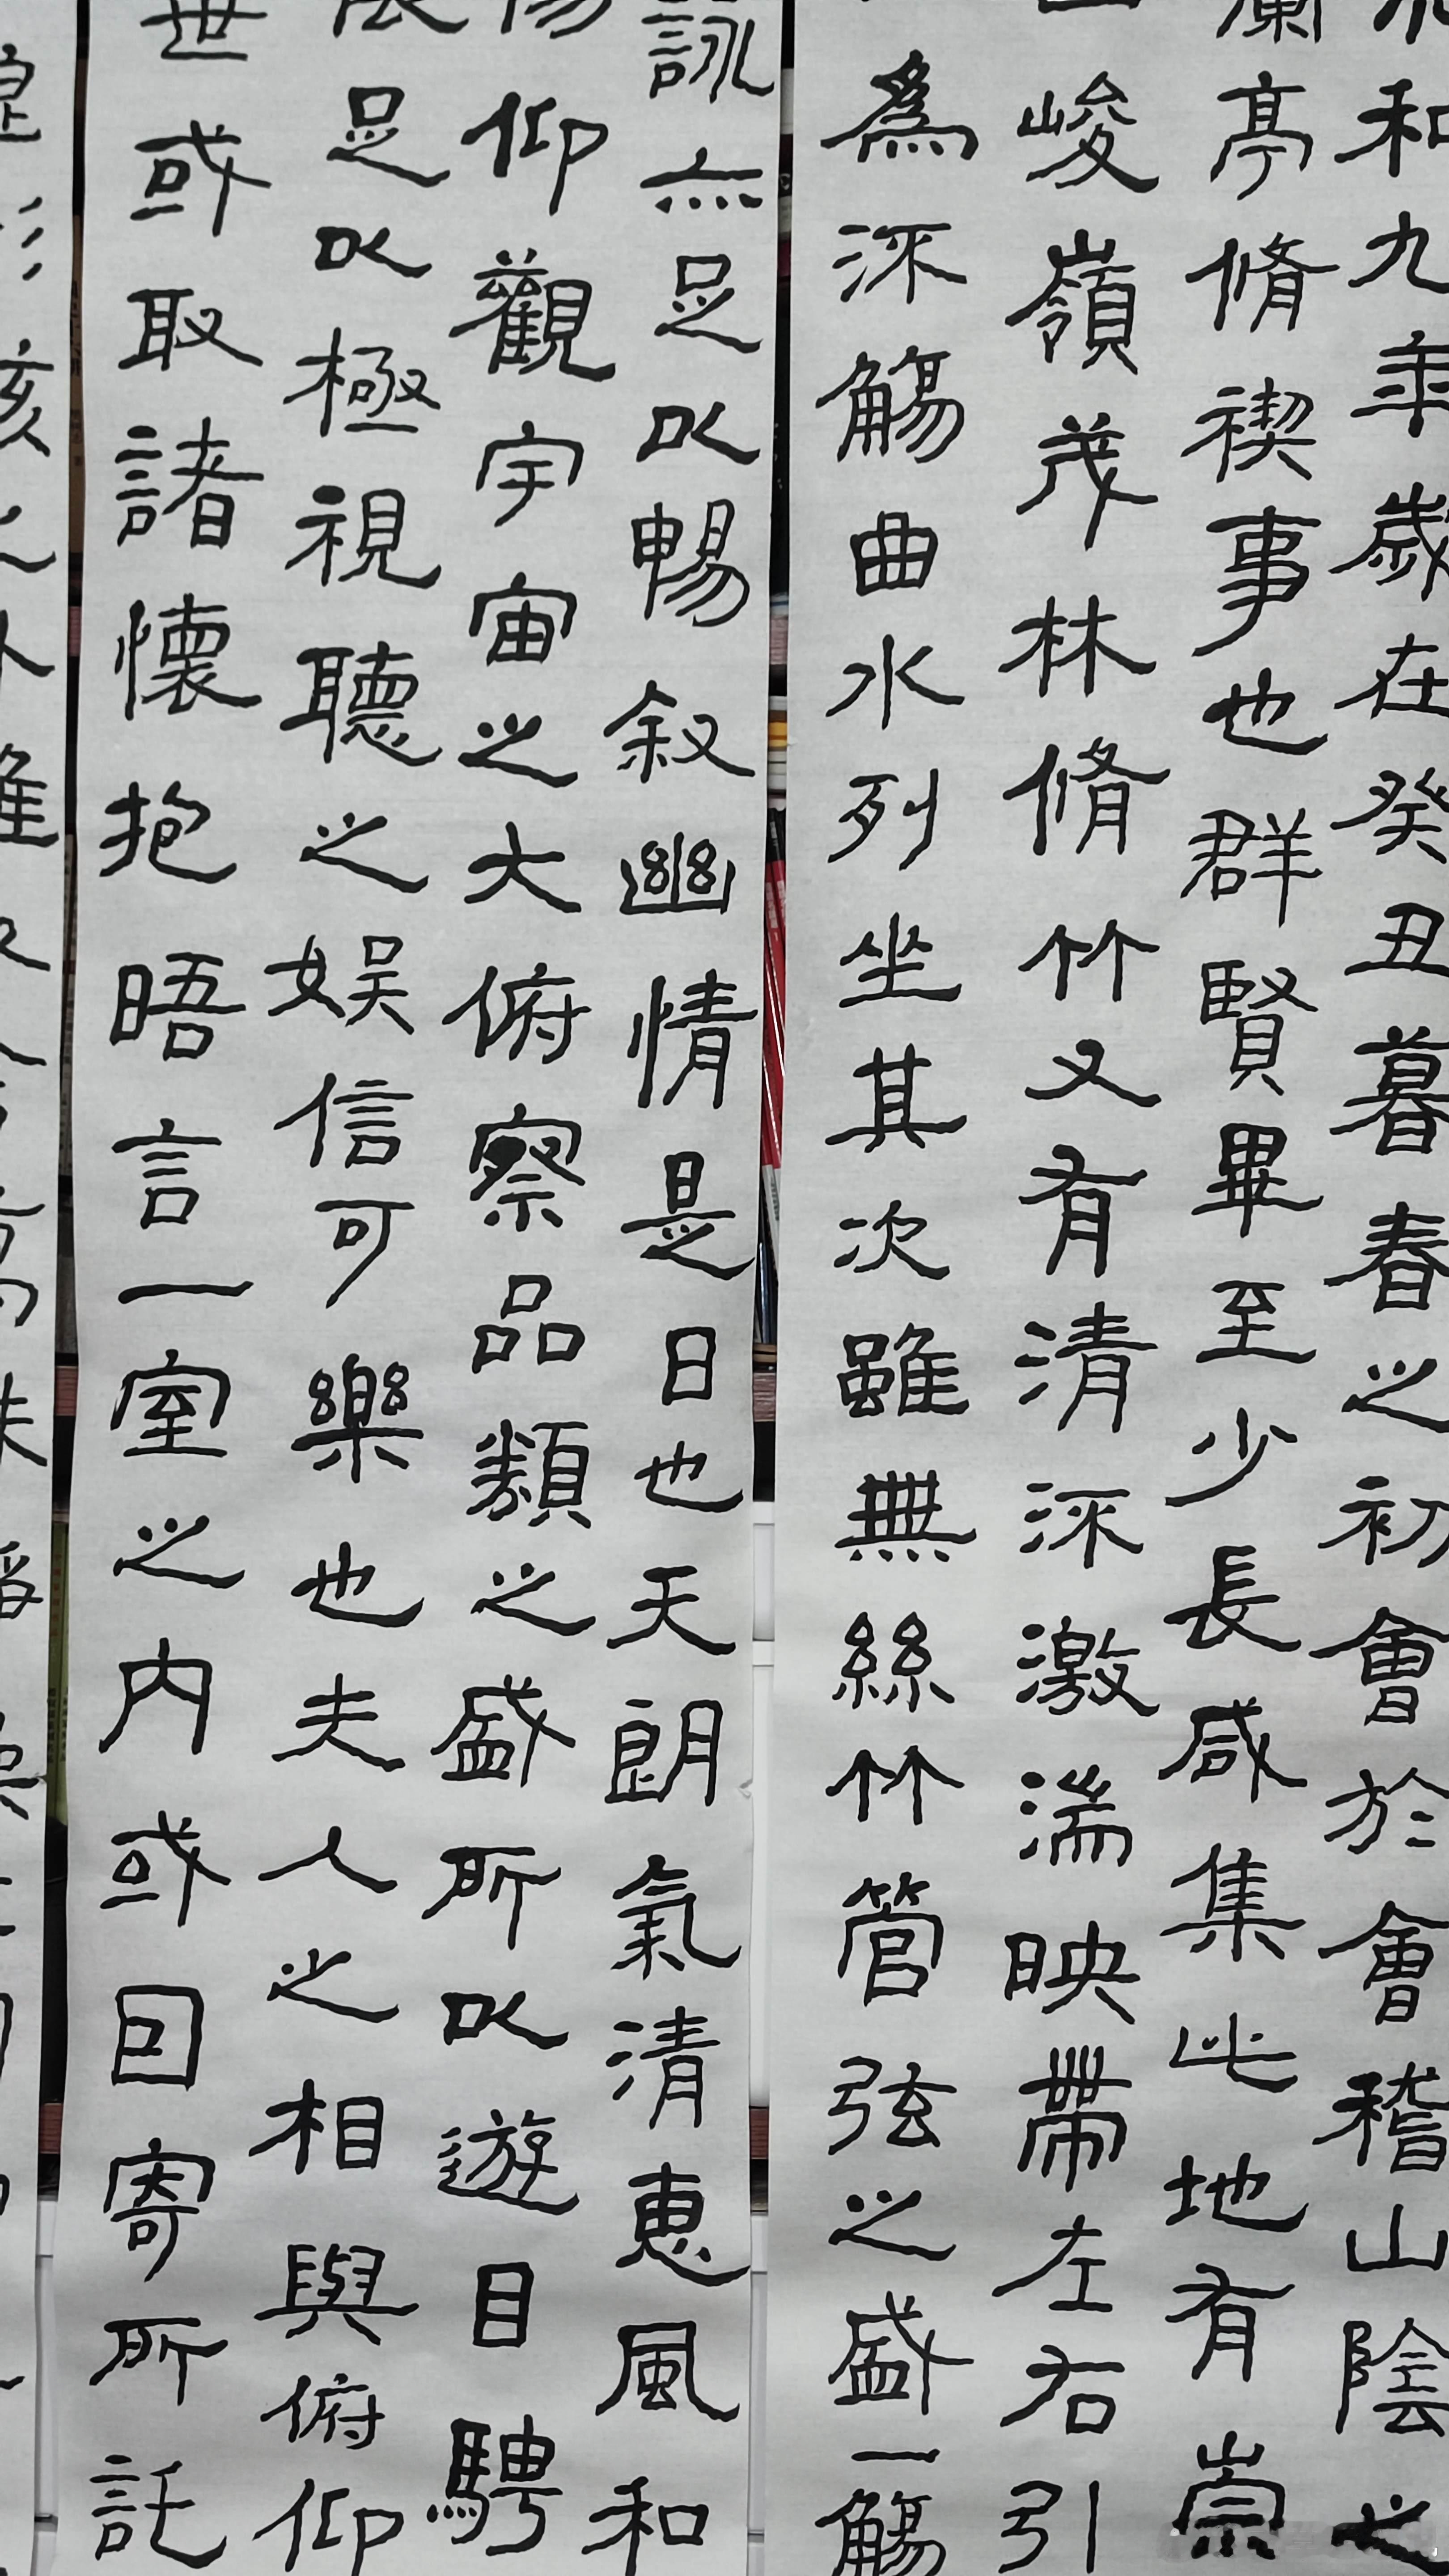 和九年歲在癸丑暮春之初會於會稽山陰之
蘭亭脩禊事也群賢畢至少長咸集此地有崇
峻嶺茂林脩竹又有清流激湍映帶左右引
為流觴曲水列坐其次雖無絲竹管弦之盛一觴
詠亦足以暢叙幽情是日也天朗氣清惠風和
暢仰觀宇宙之大俯察品類之盛所以遊目騁
足以極視聽之娛信可樂也夫人之相與俯仰
世或取諸懷抱晤言一室之内或因寄所託